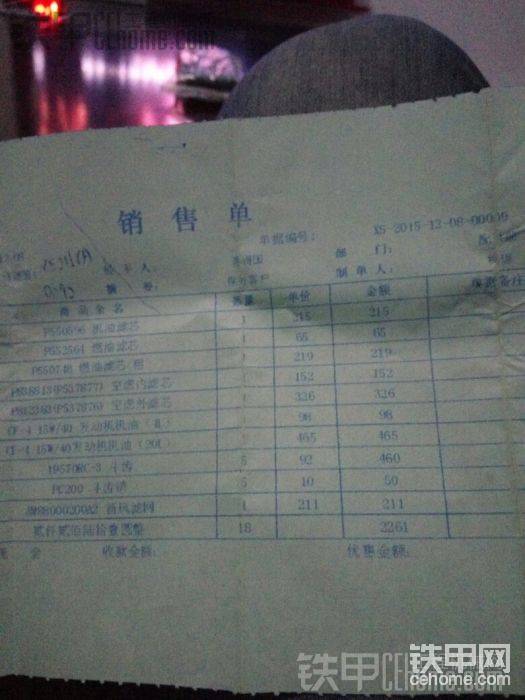 铁甲网 CEhome.com
销售单
单据编号： XS-2015-12-08-00009
经手人： 部门：
摘要： 制单人：
商品全名 数量 单价 金额 单据备注
P550596 机油滤芯 1 215 215
P552564 燃油滤芯 1 65 65
P550748 燃油滤芯/粗 1 219 219
P838813(P537877) 空滤内滤芯 1 152 152
P812363(P537876) 空滤外滤芯 1 326 326
CF-4 15W/40 发动机机油 98 98
CF-4 15W/40发动机机油（20L） 465 465
19570RC-3 斗齿 5 92 460
PC200 斗齿销 5 10 50
滤网 1 211 211
贰仟贰佰陆拾壹元整 18 2261
收款金额： 优惠金额：
铁甲网
cehome.com